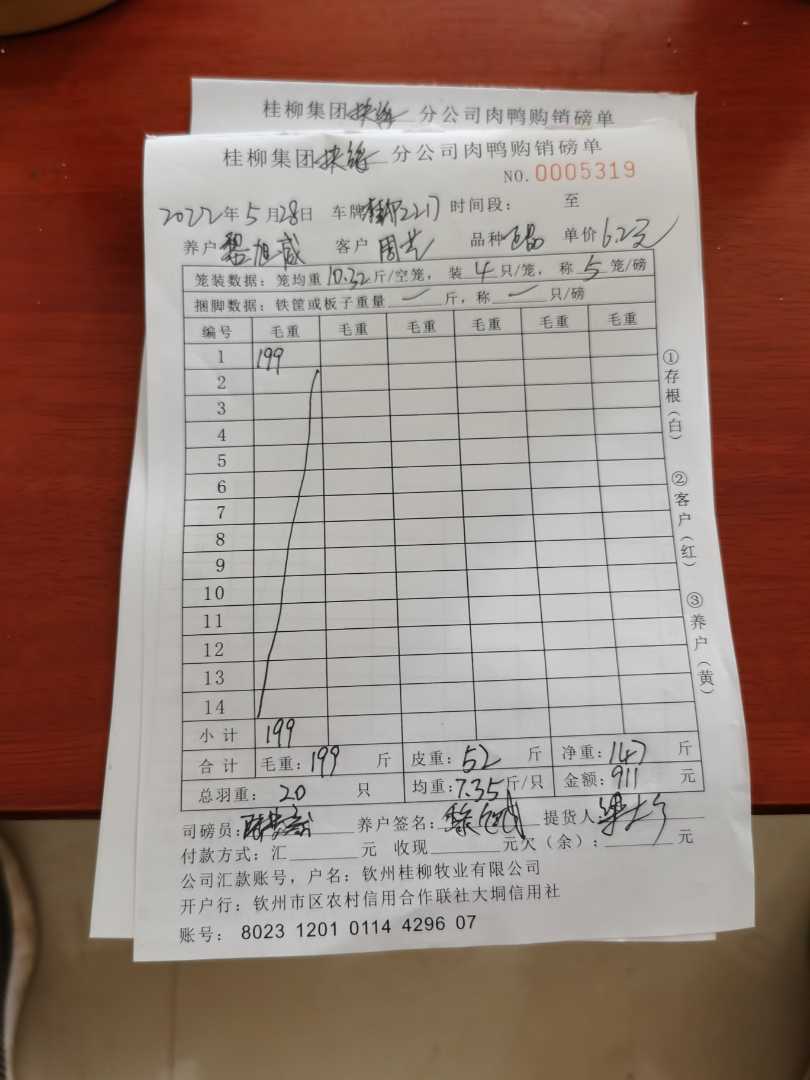 桂柳集团扶绥分公司肉鸭购销磅单
桂柳集团扶绥分公司肉鸭购销磅单
NO.0005319
2022年5月28日 车牌2217 时间段： 至
养户 旭威 客户 周 品种 单价6.2元
笼装数据：笼均重10.32斤/空笼，装4只/笼，称5笼/磅
捆脚数据：铁筐或板子重量 斤，称 只/磅
编号 毛重 毛重 毛重 毛重 毛重 毛重
1 199
2
3
4
5
6
7
8
9
10
11
12
13
14
小计 199
合计 毛重：199 斤 皮重：52 斤 净重：147 斤
总羽重：20 只 均重：7.35斤/只 金额：911 元
司磅员： 养户签名： 提货人
付款方式：汇 元 收现 元欠（余）： 元
公司汇款账号，户名：钦州桂柳牧业有限公司
开户行：钦州市区农村信用合作联社大垌信用社
账号：8023 1201 0114 4296 07
①存根（白）
②客户（红）
③养户（黄）